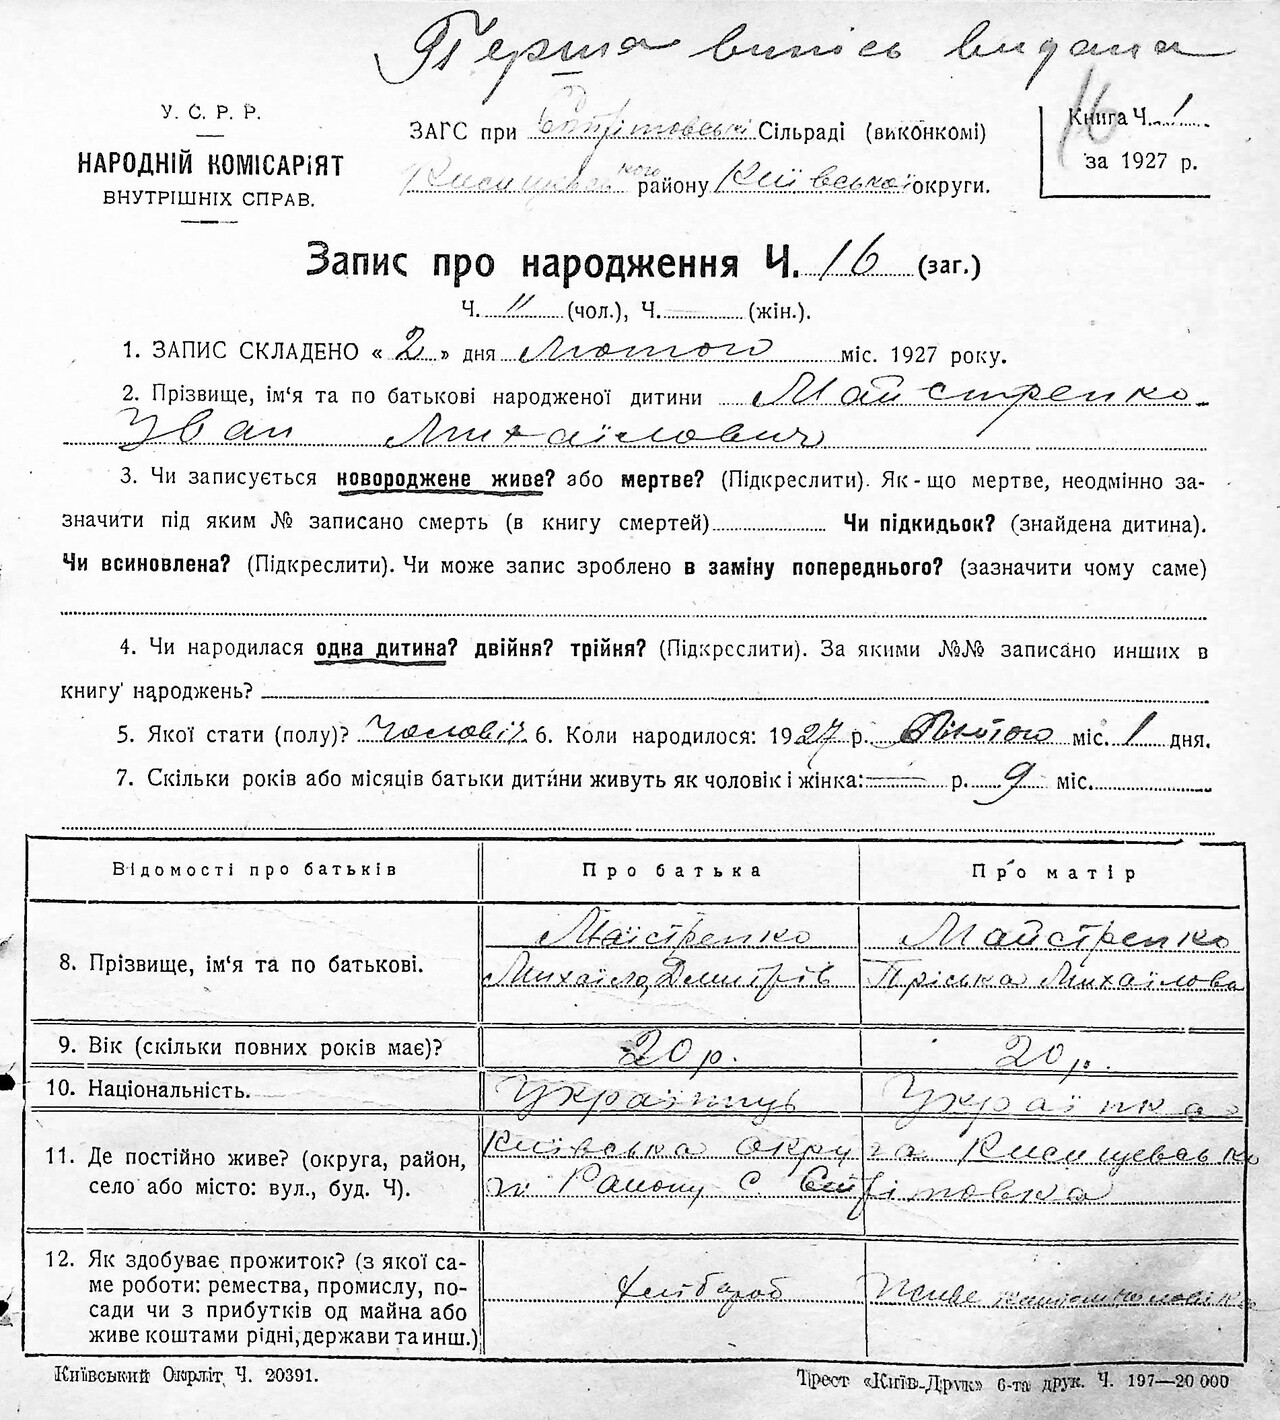 Перша випісь видана
У. С. Р. Р.
НАРОДНІЙ КОМІСАРІЯТ
ВНУТРІШНІХ СПРАВ.
ЗАГС при Сільраді (виконкомі)
району Київської округи.
16
Книга Ч. 1
за 1927 р.
Запис про народження Ч. 16 (заг.)
Ч. 11 (чол.), Ч. (жін.).
1. ЗАПИС СКЛАДЕНО « 2 » дня Лютого міс. 1927 року.
2. Прізвище, ім'я та по батькові народженої дитини Майстренко
Іван Михаїлович
3. Чи записується новороджене живе? або мертве? (Підкреслити). Як-що мертве, неодмінно за-
значити під яким № записано смерть (в книгу смертей) Чи підкидьок? (знайдена дитина).
Чи всиновлена? (Підкреслити). Чи може запис зроблено в заміну попереднього? (зазначити чому саме)
4. Чи народилася одна дитина? двійня? трійня? (Підкреслити). За якими №№ записано инших в
книгу народжень?
5. Якої стати (полу)? Чоловіч. 6. Коли народилося: 1927 р. Лютого міс. 1 дня.
7. Скільки років або місяців батьки дитини живуть як чоловік і жінка: р. 9 міс.
Відомості про батьків Про батька Про матір
8. Прізвище, ім'я та по батькові.
Маїстренко Майстренко
Михаїло Дмитрів Пріська Михаїлова
9. Вік (скільки повних років має)? 20 р. 20 р.
10. Національність. Українць Українка
11. Де постійно живе? (округа, район,
село або місто: вул., буд. Ч).
Київська округа
Району С.
12. Як здобуває прожиток? (з якої са-
ме роботи: ремества, промислу, по-
сади чи з прибутків од майна або
живе коштами рідні, держави та инш.)
Хлібороб Живе
Київський Окрліт Ч. 20391.
Трест «Київ-Друк» 6-та друк. Ч. 197—20 000